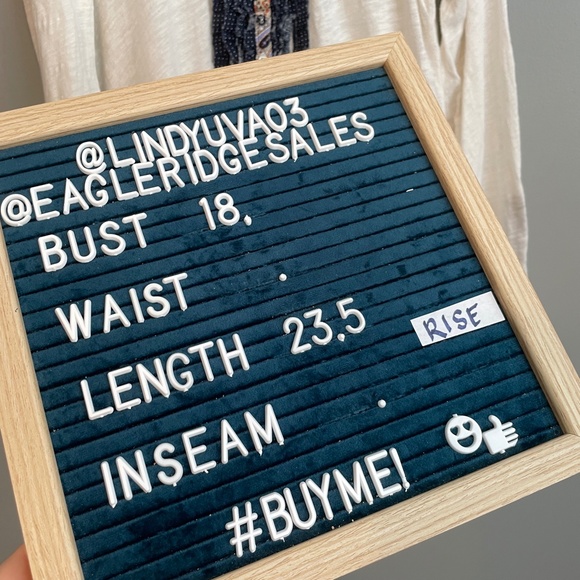 @LINDYUVA03
@EAGLERIDGESALES
BUST 18.
WAIST .
LENGTH 23.5
RISE
INSEAM .
#BUYME!